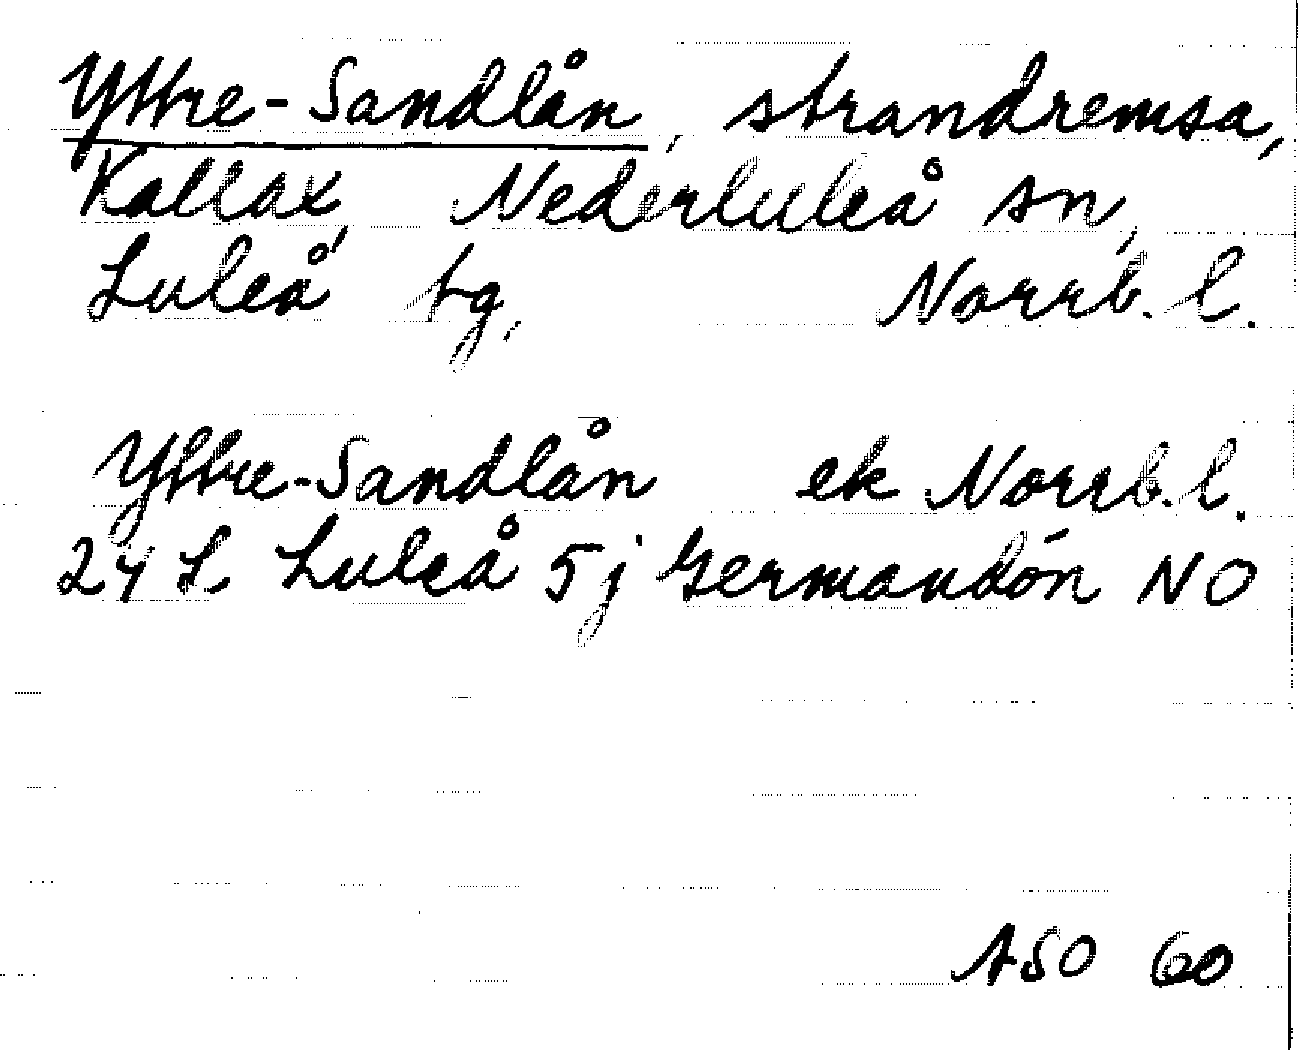 Yttre-Sandlån, strandremsa,
Kallax, Nederluleå sn,
Luleå tg, Norrb. l.
Yttre-Sandlån ek Norrb. l.
24 L Luleå 5 j Germandón NO
ASO 60